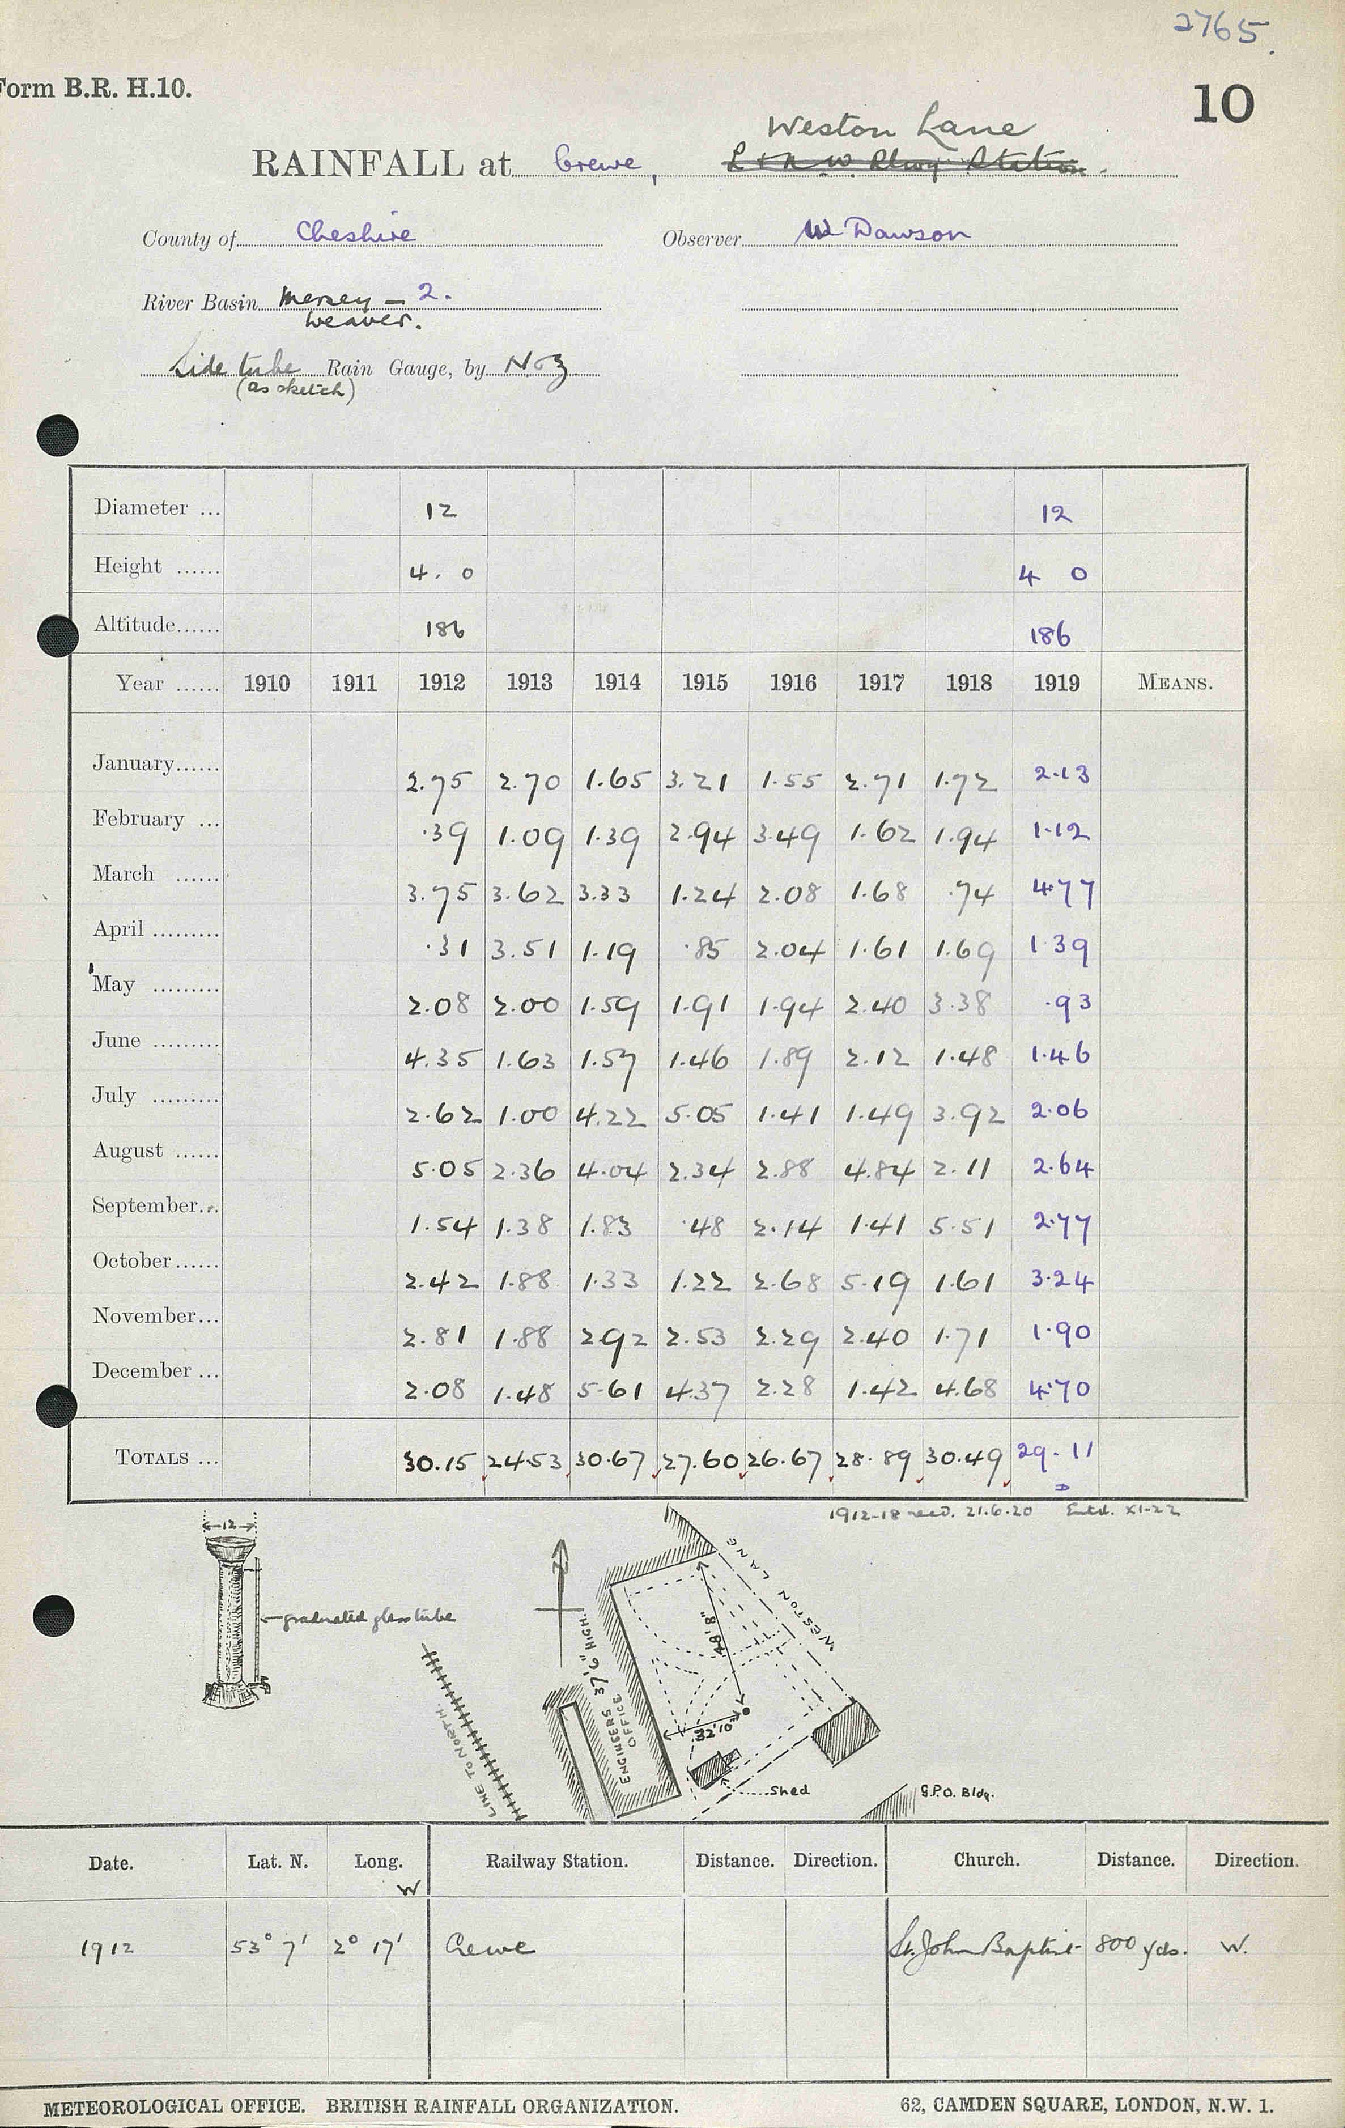 2765.
Form B.R. H.10.
10
Weston Lane
RAINFALL at Crewe, L & N. W. Rlwy Station.
County of Cheshire Observer W Dawson
River Basin Mersey – 2.
Weaver.
Side tube Rain Gauge, by
(as sketch)
Diameter ... 12 12
Height ...... 4. 0 4 0
Altitude...... 186 186
Year ...... 1910 1911 1912 1913 1914 1915 1916 1917 1918 1919 MEANS.
January...... 2.75 2.70 1.65 3.21 1.55 2.71 1.72 2.13
February ... .39 1.09 1.39 2.94 3.49 1.62 1.94 1.12
March ...... 3.75 3.62 3.33 1.24 2.08 1.68 .74 4.77
April ......... .31 3.51 1.19 .85 2.04 1.61 1.69 1.39
May ......... 2.08 2.00 1.59 1.91 1.94 2.40 3.38 .93
June ......... 4.35 1.63 1.57 1.46 1.89 2.12 1.48 1.46
July ......... 2.62 1.00 4.22 5.05 1.41 1.49 3.92 2.06
August ...... 5.05 2.36 4.04 2.34 2.88 4.84 2.11 2.64
September... 1.54 1.38 1.83 .48 2.14 1.41 5.51 2.77
October...... 2.42 1.88 1.33 1.22 2.68 5.19 1.61 3.24
November... 2.81 1.88 2.92 2.53 2.29 2.40 1.71 1.90
December ... 2.08 1.48 5.61 4.37 2.28 1.42 4.68 4.70
TOTALS ... 30.15 24.53 30.67 27.60 26.67 28.89 30.49 29.11
1912-18 recd. 21.6.20 Entd. XI-22
12
graduated glass tube
LINE TO NORTH
ENGINEERS 37' 6" HIGH.
OFFICE
48' 8"
32' 10"
WESTON LANE
Shed
G.P.O. Bldg.
Date. Lat. N. Long. W Railway Station. Distance. Direction. Church. Distance. Direction.
1912 53° 7' 2° 17' Crewe St. John Baptist 800 yds. W.
METEOROLOGICAL OFFICE. BRITISH RAINFALL ORGANIZATION. 62, CAMDEN SQUARE, LONDON, N.W. 1.